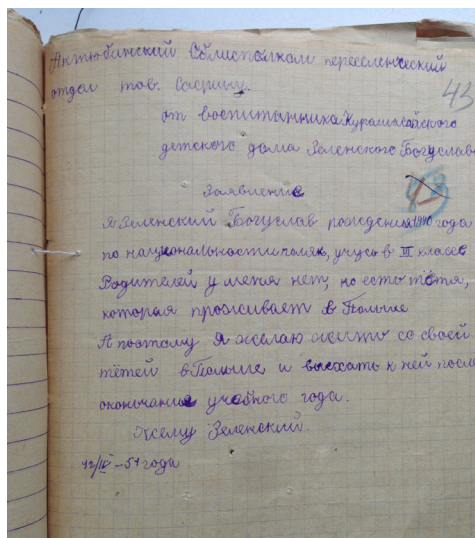 Актюбинский Облисполком переселенческий
отдел тов. Саврину.
43
от воспитанника Курашасайского
детского дома Зеленского Богуслава
Заявление
Я Зеленский Богуслав рождения 1940 года
по национальности поляк, учусь в VII классе
Родителей у меня нет, но есть тётя,
которая проживает в Польше
А поэтому я желаю жить со своей
тётей в Польше и выехать к ней после
окончание учебного года.
К сему Зеленский.
12/IV – 57 года